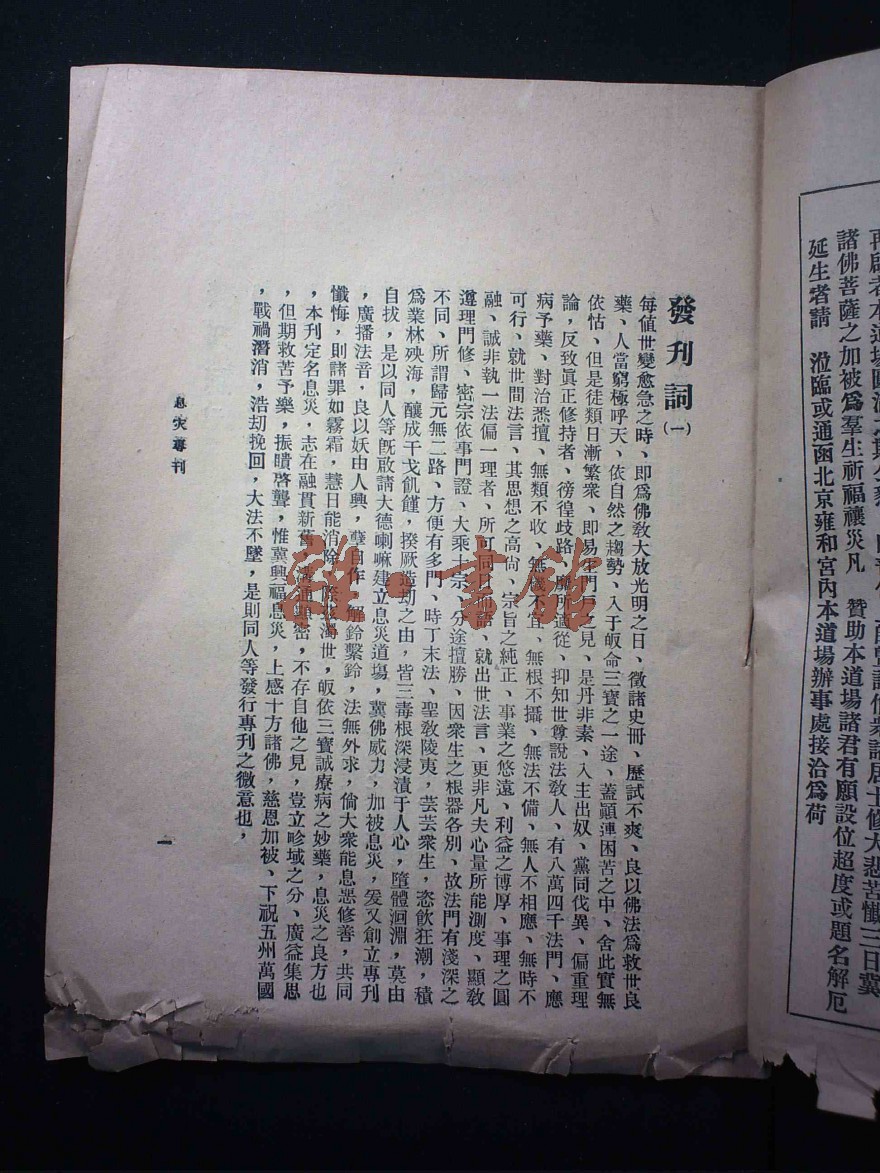 發刊詞(一)
每値世變愈急之時、即爲佛敎大放光明之日、徵諸史冊、歷試不爽、良以佛法爲救世良
藥、人當窮極呼天、依自然之趨勢、入于皈命三寶之一途、蓋顚連困苦之中、舍此實無
依怙、但是徒類日漸繁衆、即易生門戶之見、是丹非素、入主出奴、黨同伐異、偏重理
論、反致眞正修持者、徬徨歧路、靡所適從、抑知世尊說法敎人、有八萬四千法門、應
病予藥、對治悉擅、無類不收、無機不宜、無根不攝、無法不備、無人不相應、無時不
可行、就世間法言、其思想之高尙、宗旨之純正、事業之悠遠、利益之博厚、事理之圓
融、誠非執一法偏一理者、所可同日而語、就出世法言、更非凡夫心量所能測度、顯敎
遵理門修、密宗依事門證、大乘十宗、分途擅勝、因衆生之根器各別、故法門有淺深之
不同、所謂歸元無二路、方便有多門、時丁末法、聖敎陵夷、芸芸衆生、恣飮狂潮，積
爲業林殃海，釀成干戈飢饉，揆厥造劫之由，皆三毒根深浸漬于人心，墮體洄淵，莫由
自拔，是以同人等旣啟請大德喇嘛建立息災道塲，冀佛威力，加被息災，爰又創立專刊
，廣播法音，良以妖由人興，孽自作，解鈴繫鈴，法無外求，倘大衆能息惡修善，共同
懺悔，則諸罪如霧霜，慧日能消除，際茲濁世，皈依三寶誠療病之妙藥，息災之良方也
，本刊定名息災，志在融貫新舊，溝通顯密，不存自他之見，豈立畛域之分、廣益集思
，但期救苦予樂，振瞶啓聾，惟冀興福息災，上感十方諸佛，慈恩加被、下祝五州萬國
，戰禍潛消，浩劫挽回，大法不墜，是則同人等發行專刊之微意也，
息灾專刊
一
諸佛菩薩之加被爲羣生祈福禳災凡　贊助本道場諸君有願設位超度或題名解厄
延生者請　涖臨或通函北京雍和宮內本道場辦事處接洽爲荷